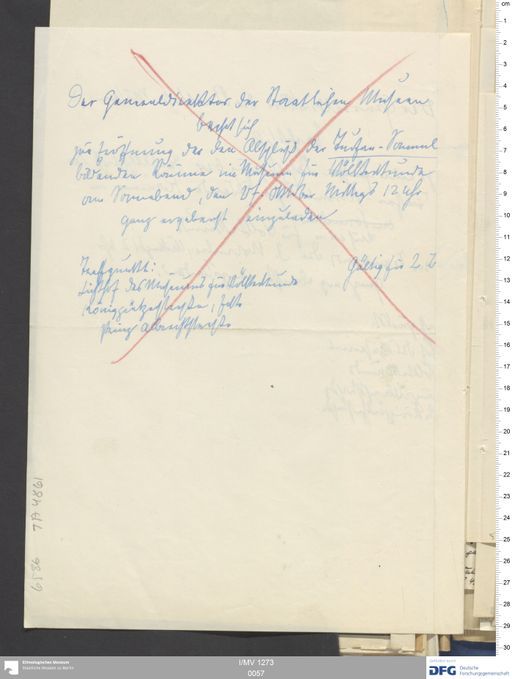 Der Generaldirektor der Staatlichen Museen
beehrt sich
zur Eröffnung der den Abschluß der Turfan-Samml
bildenden Räume im Museum für Völkerkunde
am Sonnabend, den Oktober Mittags 12 Uhr
ganz ergebenst einzuladen
Treffpunkt: Gültig für 2 P.
Lichthof des Museums für Völkerkunde
Königgrätzerstraße, Ecke
Prinz Albrechtstraße
6586 TA 4861
Ethnologisches Museum
Staatliche Museen zu Berlin
I/MV 1273
0057
DFG Deutsche
Forschungsgemeinschaft
cm
1
2
3
4
5
6
7
8
9
10
11
12
13
14
15
16
17
18
19
20
21
22
23
24
25
26
27
28
29
30